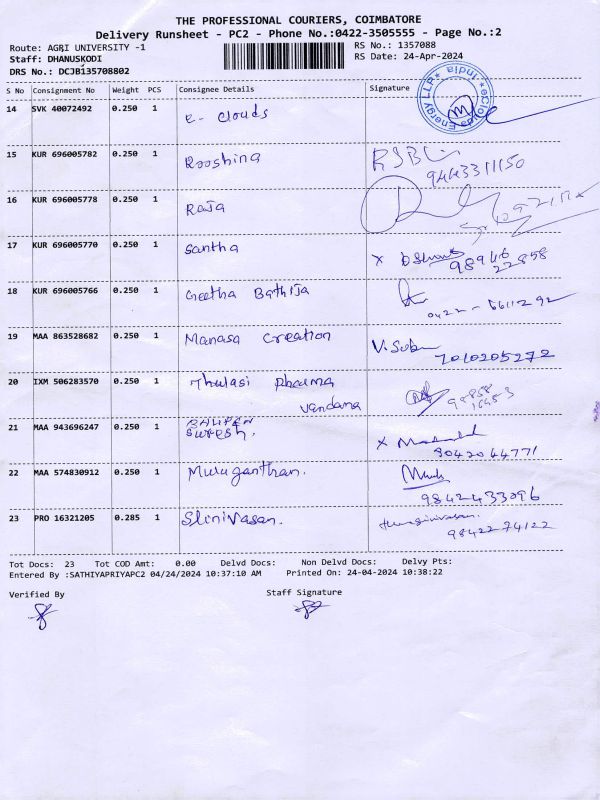 THE PROFESSIONAL COURIERS, COIMBATORE
Delivery Runsheet - PC2 - Phone No.:0422-3505555 - Page No.:2
Route: AGRI UNIVERSITY -1 RS No.: 1357088
Staff: DHANUSKODI RS Date: 24-Apr-2024
DRS No.: DCJB135708802
S No Consignment No Weight PCS Consignee Details Signature
14 SVK 40072492 0.250 1 e- clouds
eClouds Energy LLP * India *
15 KUR 696005782 0.250 1 Rooshina
9443311150
16 KUR 696005778 0.250 1 Raja
17 KUR 696005770 0.250 1 Santha x
98946
22858
18 KUR 696005766 0.250 1 Geetha Bathija
0422 - 6611292
19 MAA 863528682 0.250 1 Manasa Creation V. Subu
7010205272
20 IXM 506283570 0.250 1 Thulasi Pharma
Vandana
98858
16953
21 MAA 943696247 0.250 1
Suresh. x
8042044771
22 MAA 574830912 0.250 1 Muruganthan.
9842433096
23 PRO 16321205 0.285 1 Srinivasan.
98422-74122
Tot Docs: 23 Tot COD Amt: 0.00 Delvd Docs: Non Delvd Docs: Delvy Pts:
Entered By :SATHIYAPRIYAPC2 04/24/2024 10:37:10 AM Printed On: 24-04-2024 10:38:22
Verified By Staff Signature